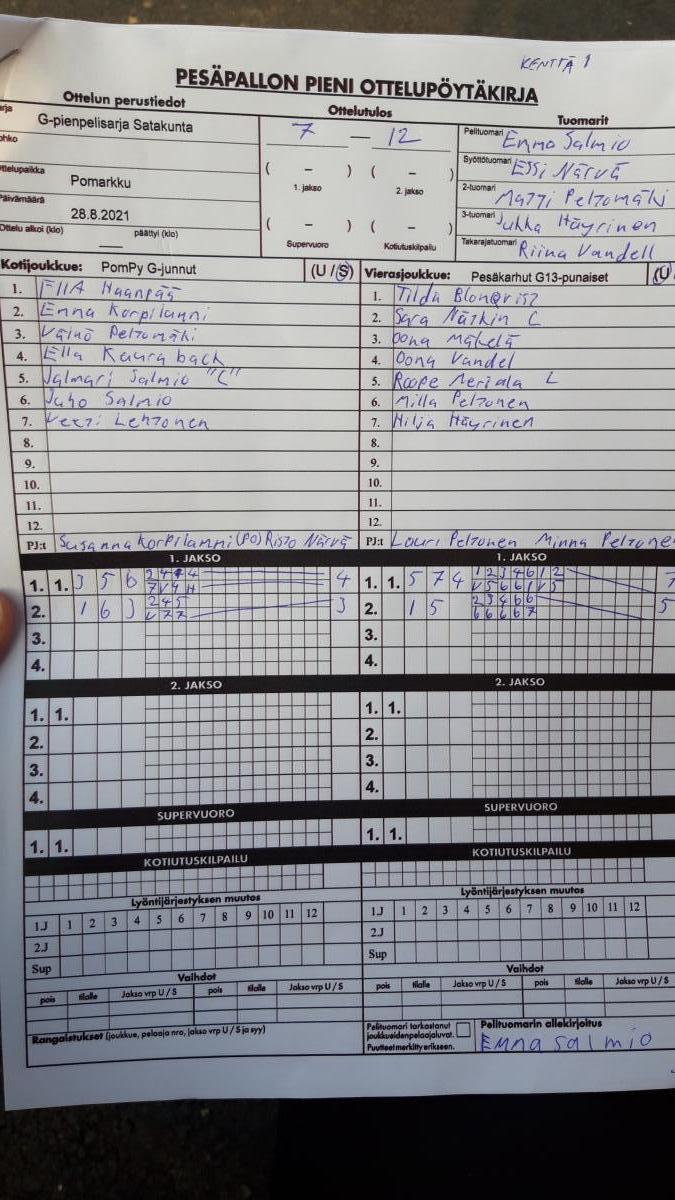 KENTTÄ 1
PESÄPALLON PIENI OTTELUPÖYTÄKIRJA
Ottelun perustiedot
Ottelutulos
Tuomarit
G-pienpelisarja Satakunta
7 — 12
Pelituomari Enna Salmio
( – ) ( – )
Syöttötuomari Essi Närvä
1. jakso 2. jakso
Pomarkku
2-tuomari Matti Peltomäki
28.8.2021
( – ) ( – )
3-tuomari Jukka Häyrinen
Ottelu alkoi (klo) päättyi (klo)
Supervuoro Kotiutuskilpailu
Takarajatuomari Riina Vandell
Kotijoukkue: PomPy G-junnut (U / S)
Vierasjoukkue: Pesäkarhut G13-punaiset (U
1. Haanpää
2. Enna Korpilanni
3. Väinö Peltomäki
4. Ella Kauraback
5. Jalmari Salmio "C"
6. Juho Salmio
7. Veeti Lehtonen
8.
9.
10.
11.
12.
PJ:t Susanna Korpilanni (PO) Risto Närvä
1. Tilda Blonqvist
2. Sara Näskin C
3. Oona Mäkelä
4. Oona Vandel
5. Roope Meriala L
6. Milla Peltonen
7. Hilja Häyrinen
8.
9.
10.
11.
12.
PJ:t Louri Peltonen Minna Peltone
1. JAKSO
1. 1. 3 5 6 4
2. 1 6 3 2 4 5 3
V 7 7
3.
4.
1. JAKSO
1. 1. 5 7 4 1 2 3 4 6 1 2 7
V 5 6 6 1 V 5
2. 1 5 2 3 4 6 6 5
6 6 6 6 7
3.
4.
2. JAKSO
1. 1.
2.
3.
4.
2. JAKSO
1. 1.
2.
3.
4.
SUPERVUORO
1. 1.
SUPERVUORO
1. 1.
KOTIUTUSKILPAILU
KOTIUTUSKILPAILU
Lyöntijärjestyksen muutos
1.J 1 2 3 4 5 6 7 8 9 10 11 12
2.J
Sup
Lyöntijärjestyksen muutos
1.J 1 2 3 4 5 6 7 8 9 10 11 12
2.J
Sup
Vaihdot
pois tilalle Jakso vrp U / S pois tilalle Jakso vrp U / S
Vaihdot
pois tilalle Jakso vrp U / S pois tilalle Jakso vrp U / S
Rangaistukset (joukkue, pelaaja nro, jakso vrp U / S ja syy)
Pelituomari tarkastanut
joukkueiden pelaajaluvat.
Puutteet merkitty erikseen.
Pelituomarin allekirjoitus
Enna Salmio